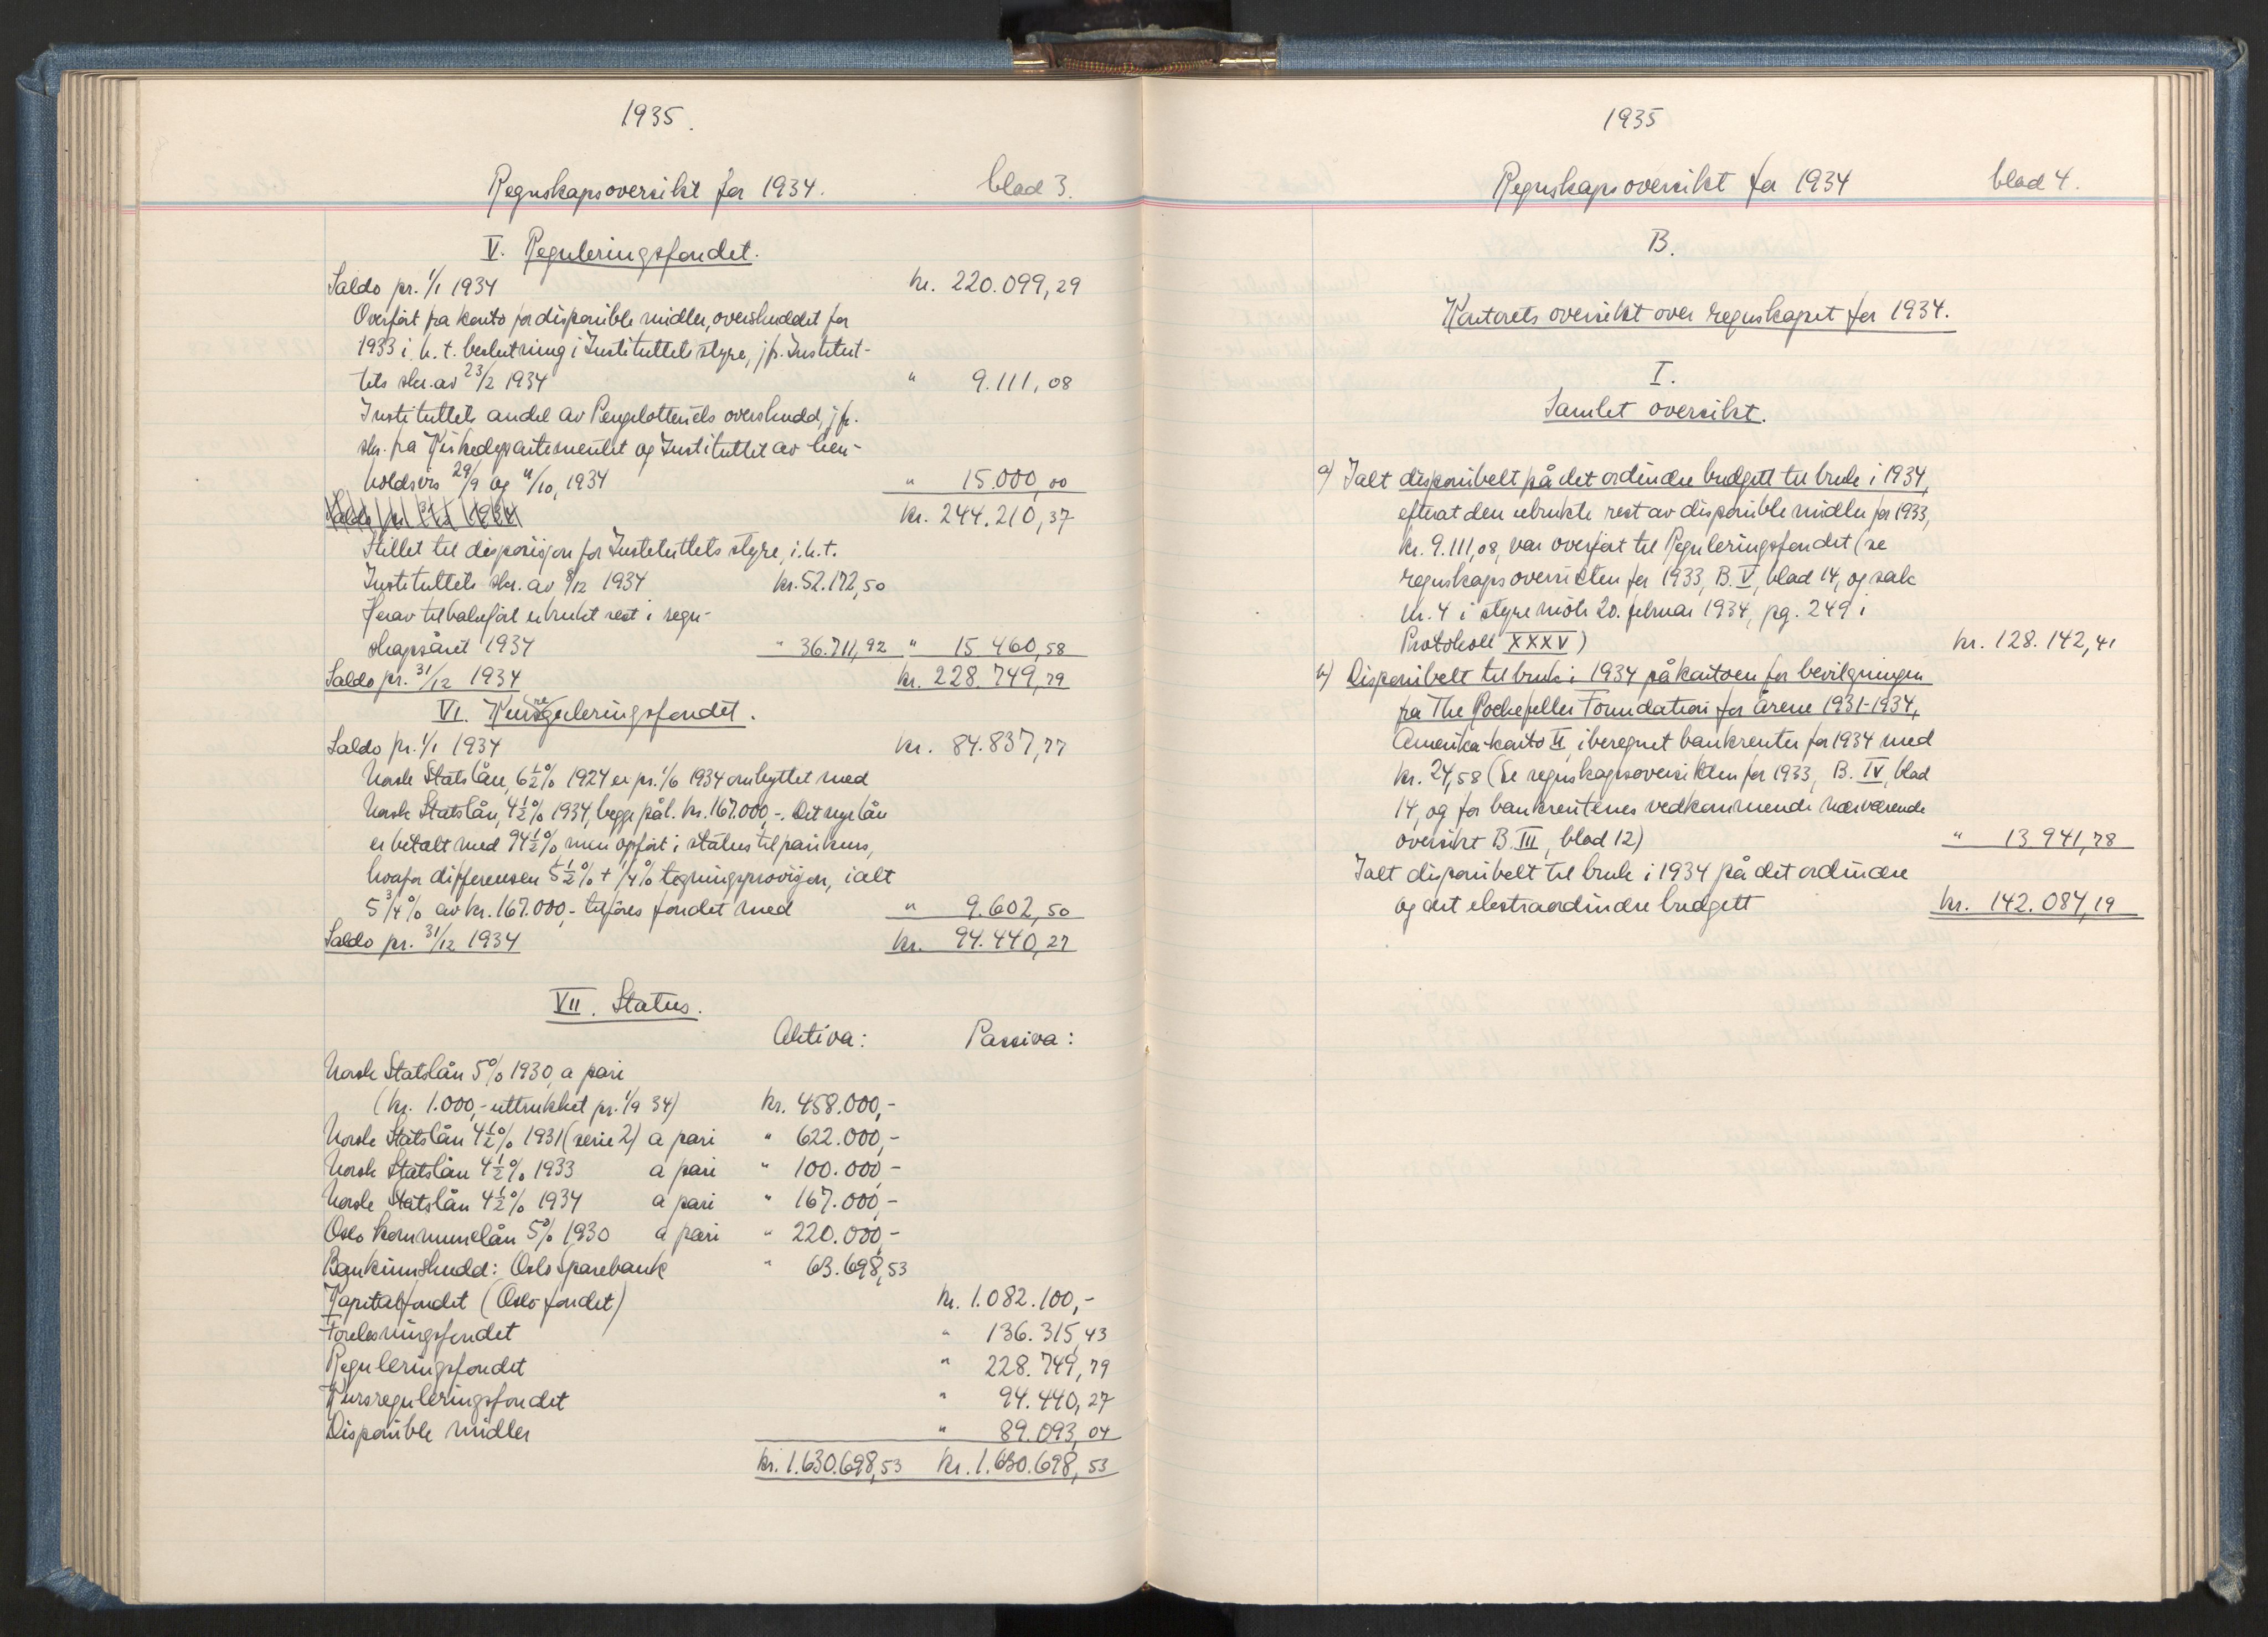 1935.
Regnskapsoversikt for 1934. blad 3.
V. Reguleringsfondet.
Saldo pr. 1/1 1934 kr. 220.099,29
Overført fra konto for disponible midler, overskuddet for
1933 i h. t. beslutning i Instituttets styre, jfr. Institut-
tets skr. av 23/2 1934 " 9.111,08
Instituttets andel av Pengelotteriets overskudd, jfr.
skr. fra Kirkedepartementet og Instituttet av hen-
holdsvis 29/9 og 4/10, 1934 " 15.000,00
Saldo pr. 31/12 1934 kr. 244.210,37
Stillet til disposisjon for Instituttets styre, i. h. t.
Instituttets skr. av 8/12 1934 kr. 52.172,50
Herav tilbakeført ubrukt rest i regn-
skapsåret 1934 " 36.711,92 " 15 460,58
Saldo pr. 31/12 1934 kr. 228.749,79
VI. Kursreguleringsfondet.
Saldo pr. 1/1 1934 kr. 84.837,77
Norsk Statslån, 6½% 1924 er pr. 1/6 1934 ombyttet med
Norsk Statslån, 4½% 1934, begge pål. kr. 167.000,-. Det nye lån
er betalt med 94½% men opført i status til parikurs,
hvorfor differensen 5½% + 1/4% tegningsprovisjon, ialt
5 3/4% av kr. 167.000,- tilføres fondet med " 9.602,50
Saldo pr. 31/12 1934 kr. 94.440,27
VII. Status.
Aktiva: Passiva:
Norsk Statslån 5% 1930, a pari
(kr. 1.000,- uttrukket pr. 1/9 34) kr. 458.000,-
Norsk Statslån 4½% 1931 (serie 2) a pari " 622.000,-
Norsk Statslån 4½% 1933 a pari " 100.000,-
Norsk Statslån 4½% 1934 a pari " 167.000,-
Oslo kommunelån 5% 1930 a pari " 220.000,-
Bankinnskudd: Oslo Sparebank " 63.698,53
Kapitalfondet (Oslofondet) kr. 1.082.100,-
Forelesningsfondet " 136.315,43
Reguleringsfondet " 228.749,79
Kursreguleringsfondet " 94.440,27
Disponible midler " 89.093,04
kr. 1.630.698,53 kr. 1.630.698,53
1935
Regnskapsoversikt for 1934 blad 4.
B.
Kontorets oversikt over regnskapet for 1934.
I.
Samlet oversikt.
a) Ialt disponibelt på det ordinære budgett til bruk i 1934,
efterat den ubrukte rest av disponible midler for 1933,
kr. 9.111,08, var overført til Reguleringsfondet (se
regnskapsoversikten for 1933, B. V, blad 14, og sak
nr. 4 i styremøte 20. februar 1934, pg. 249 i
Protokoll XXXV) kr. 128.142,41
b) Disponibelt til bruk i 1934 på kontoen for bevilgningen
fra The Rockefeller Foundation for årene 1931-1934,
Amerika-konto II, iberegnet bankrenter for 1934 med
kr. 24,58 (Se regnskapsoversikten for 1933, B. IV, blad
14, og for bankrentenes vedkommende nærværende
oversikt B. III, blad 12) " 13.941,78
Ialt disponibelt til bruk i 1934 på det ordinære
og det ekstraordinære budgett kr. 142.084,19